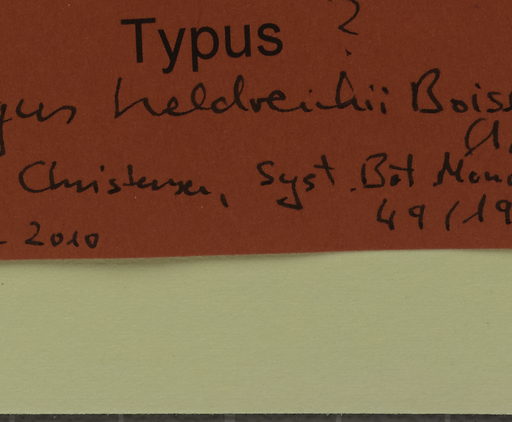 Typus ?
gus heldreichii Boiss
Christensen, Syst. Bot Mono
49 (19
- 2010